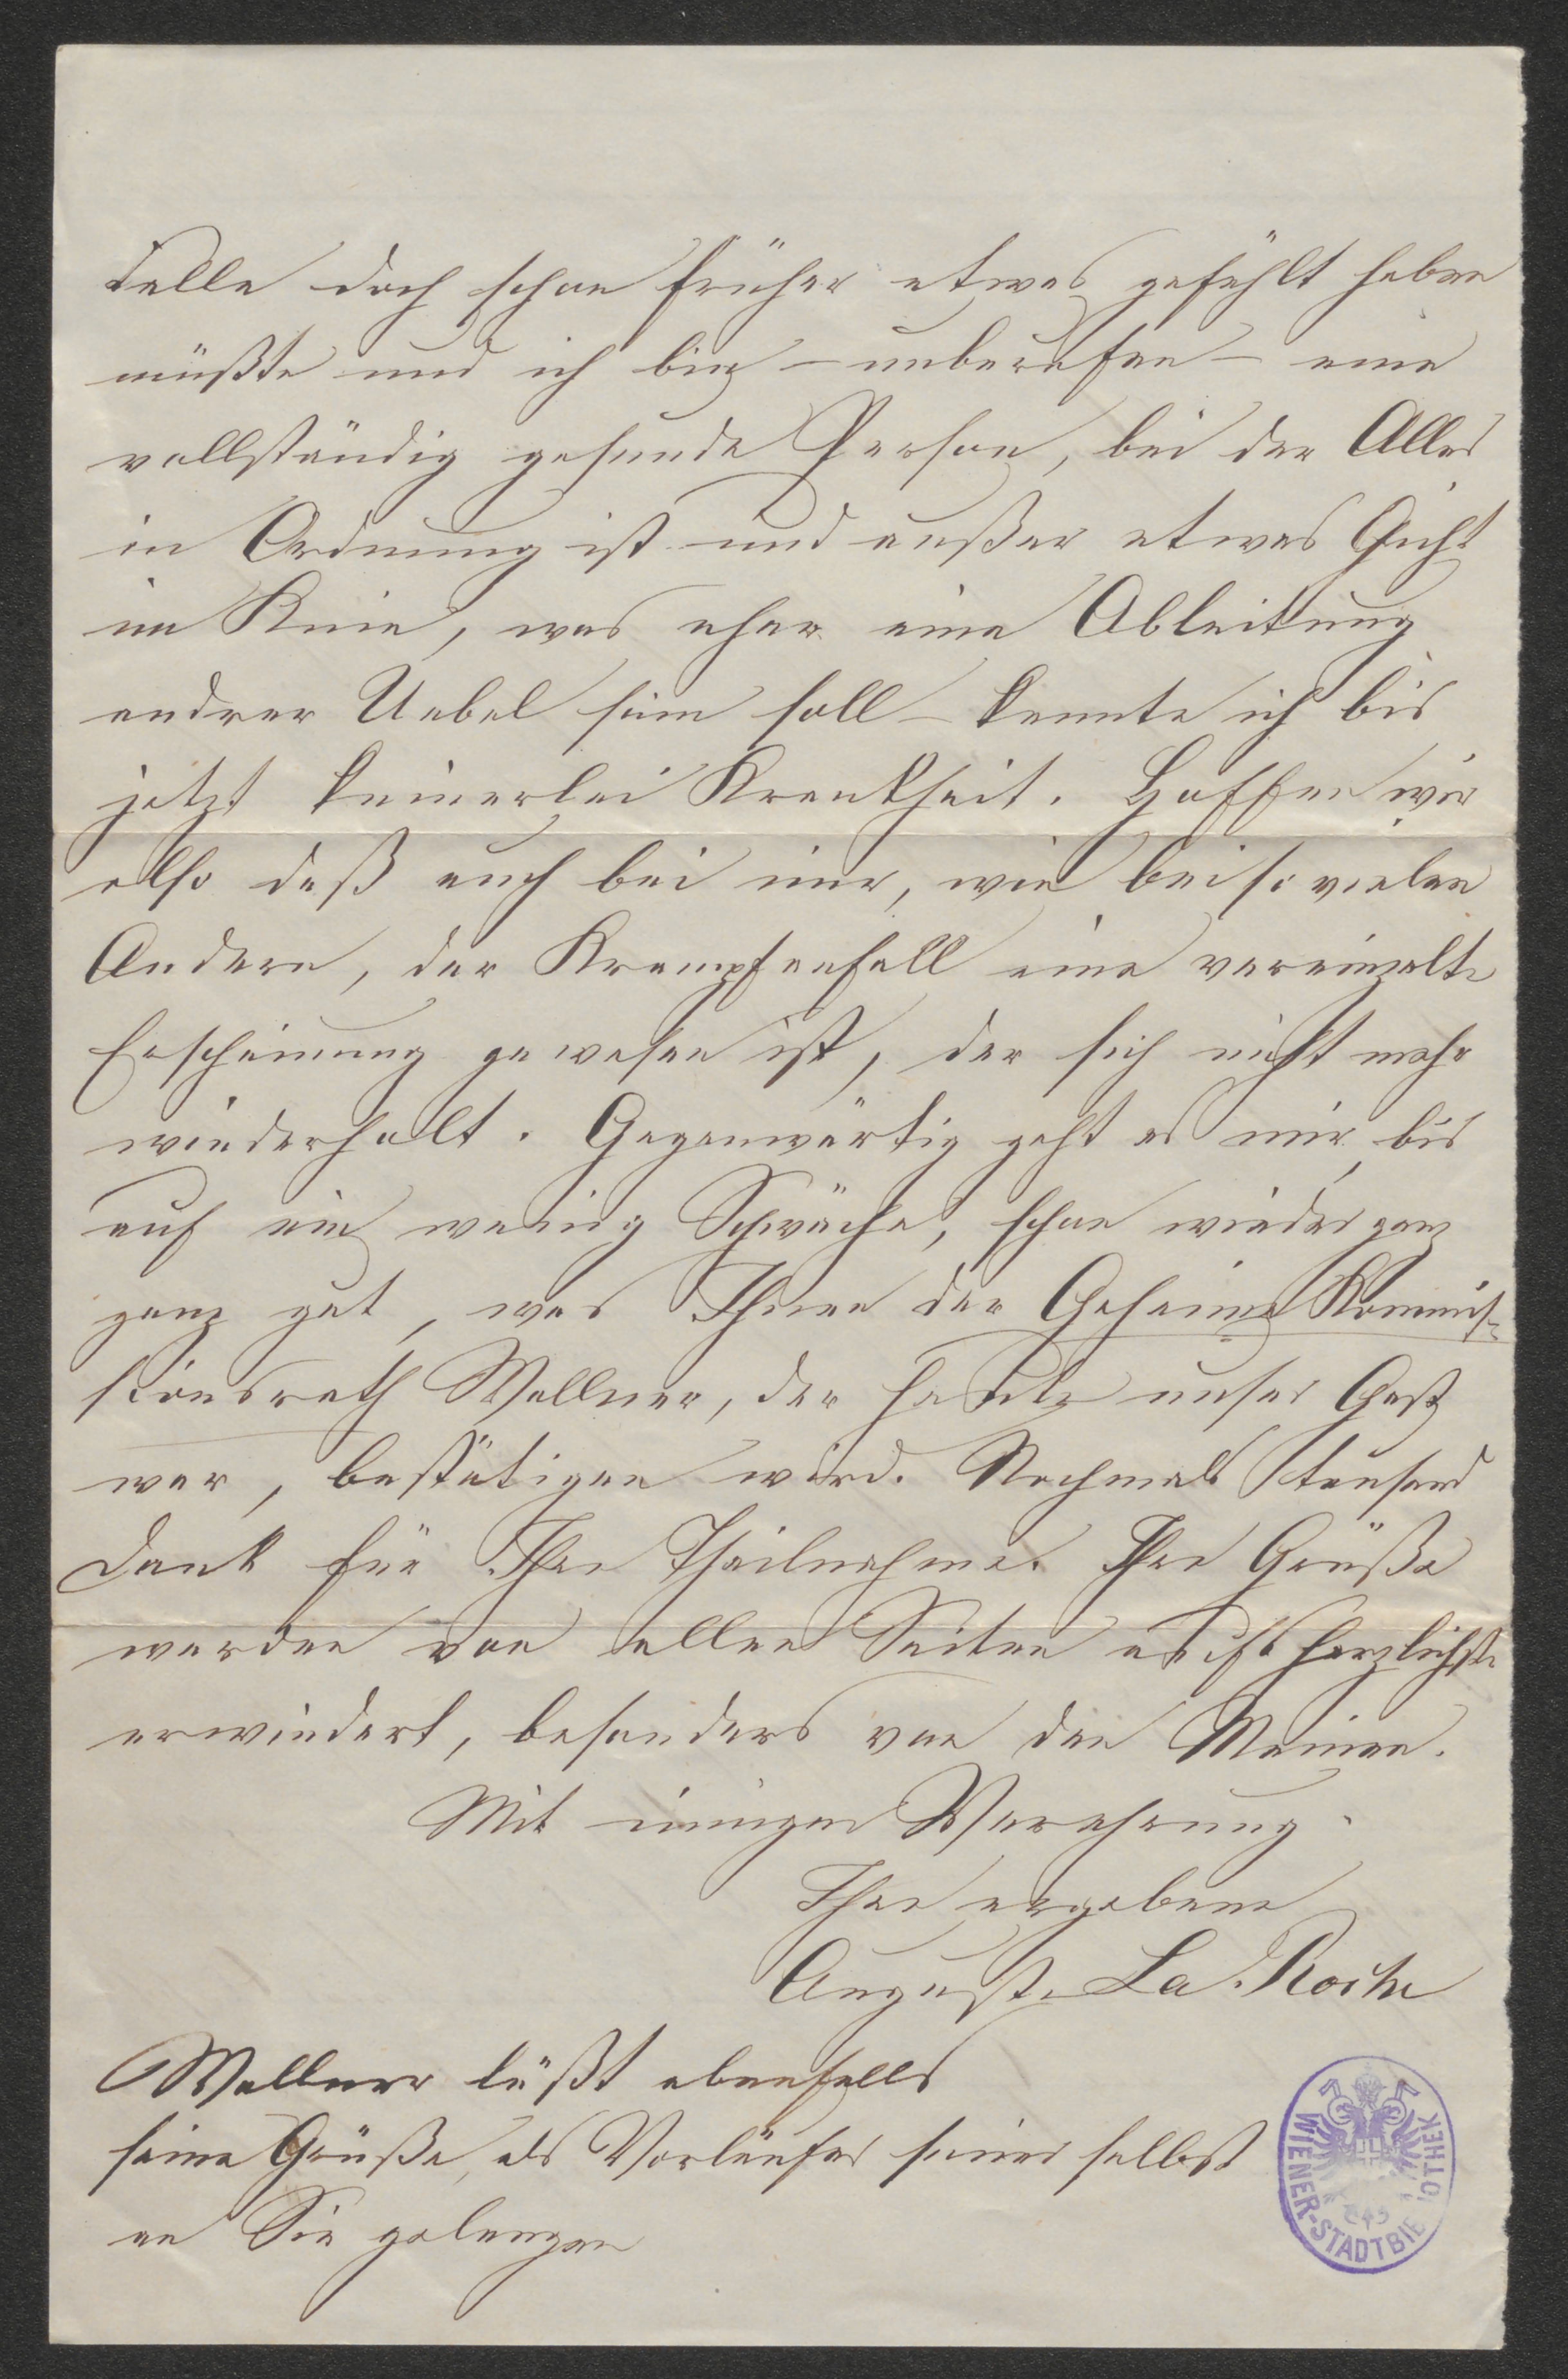 Falle doch schon früher etwas gefühlt haben
müßte und ich bin – unberufen – eine
vollständig gesunde Person, bei der Alles
in Ordnung ist und außer etwas Gicht
im Knie, was eher eine Ableitung
andrer Uebel sein soll – kannte ich bis
jetzt keinerlei Krankheit. Hoffen wir
also daß auch bei mir, wie bei so vielen
Andern, der Krampfanfall eine vereinzelte
Erscheinung gewesen ist, der sich nicht mehr
wiederholt. Gegenwärtig geht es mir, bis
auf ein wenig Schwäche, schon wieder ganz
ganz gut, was Ihnen der Geheime Kommis-
sionsrath Wallner, der heute unser Gast
war, bestätigen wird. Nochmals tausend
Dank für Ihre Theilnahme. Ihre Grüße
werden von allen Seiten aufs herzlichste
erwiedert, besonders von den Meinen.
Mit inniger Verehrung
Ihre ergebene
Auguste La Roche
Wallner läßt ebenfalls
seine Grüße, als Vorläufer seiner selbst
an Sie gelangen
WIENER-STADTBIBLIOTHEK